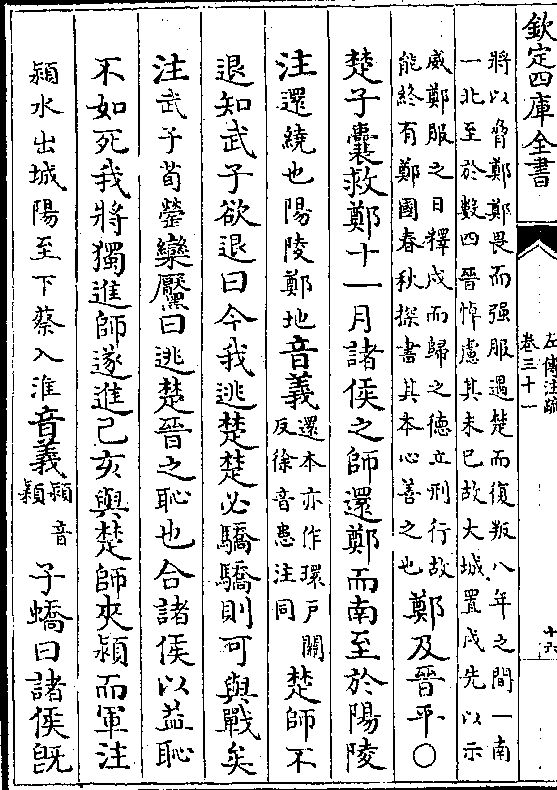 欽定四庫全書
左傳注疏
卷三十一
十六
將以脅鄭鄭畏而强服遇楚而復叛八年之間一南
一北至於數四晉悼慮其未已故大城置戍先以示
威鄭服之日釋戍而歸之德立刑行故
能終有鄭國春秋探書其本心善之也
鄭及晉平○
楚子囊救鄭十一月諸侯之師還鄭而南至於陽陵
注還繞也陽陵鄭地音義還本亦作環戶關
反徐音患注同
楚師不
退知武子欲退曰今我逃楚楚必驕驕則可與戰矣
注武子荀罃欒黶曰逃楚晉之恥也合諸侯以益恥
不如死我將獨進師遂進己亥與楚師夾潁而軍注
潁水出城陽至下蔡入淮音義潁音
潁
子蟜曰諸侯旣